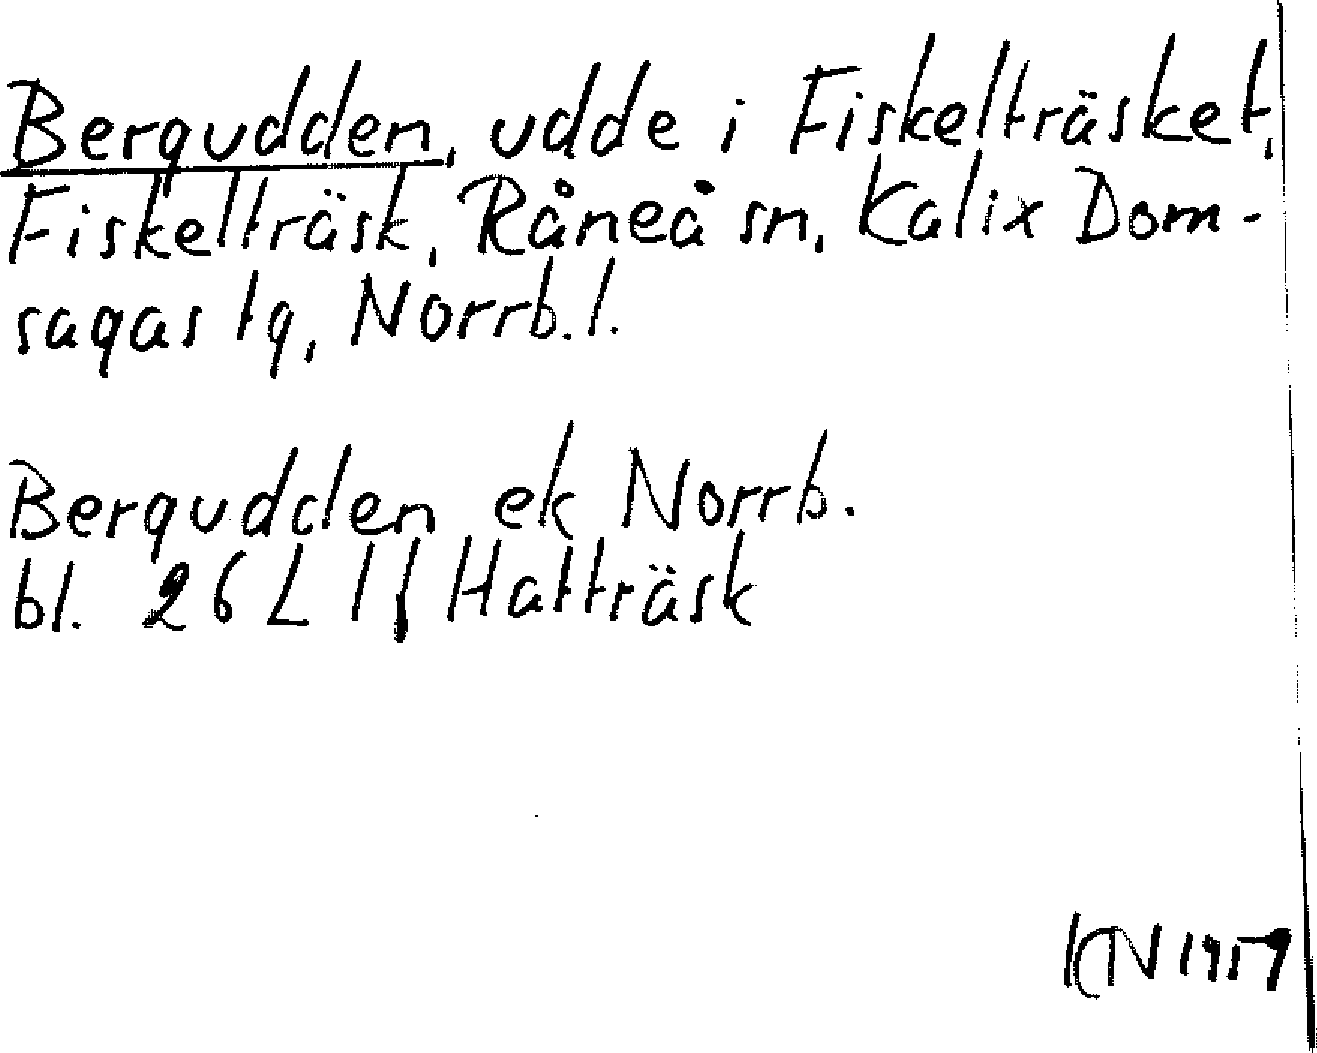 Bergudden, udde i Fiskelträsket,
Fiskelträsk, Råneå sn, Kalix Dom-
sagas tg, Norrb. l.
Bergudden ek Norrb.
bl. 26 L If Hatträsk
KN 1959